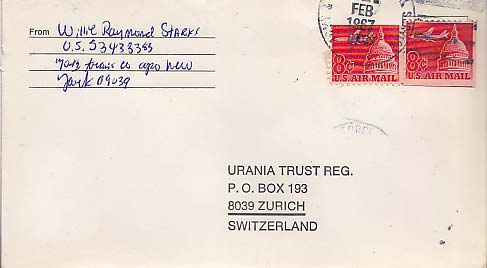 From Willie Raymond Starks
U.S. 53433383
apo new
York 09039
FEB
1967
8¢ U.S. AIR MAIL
8¢ U.S. AIR MAIL
URANIA TRUST REG.
P. O. BOX 193
8039 ZURICH
SWITZERLAND